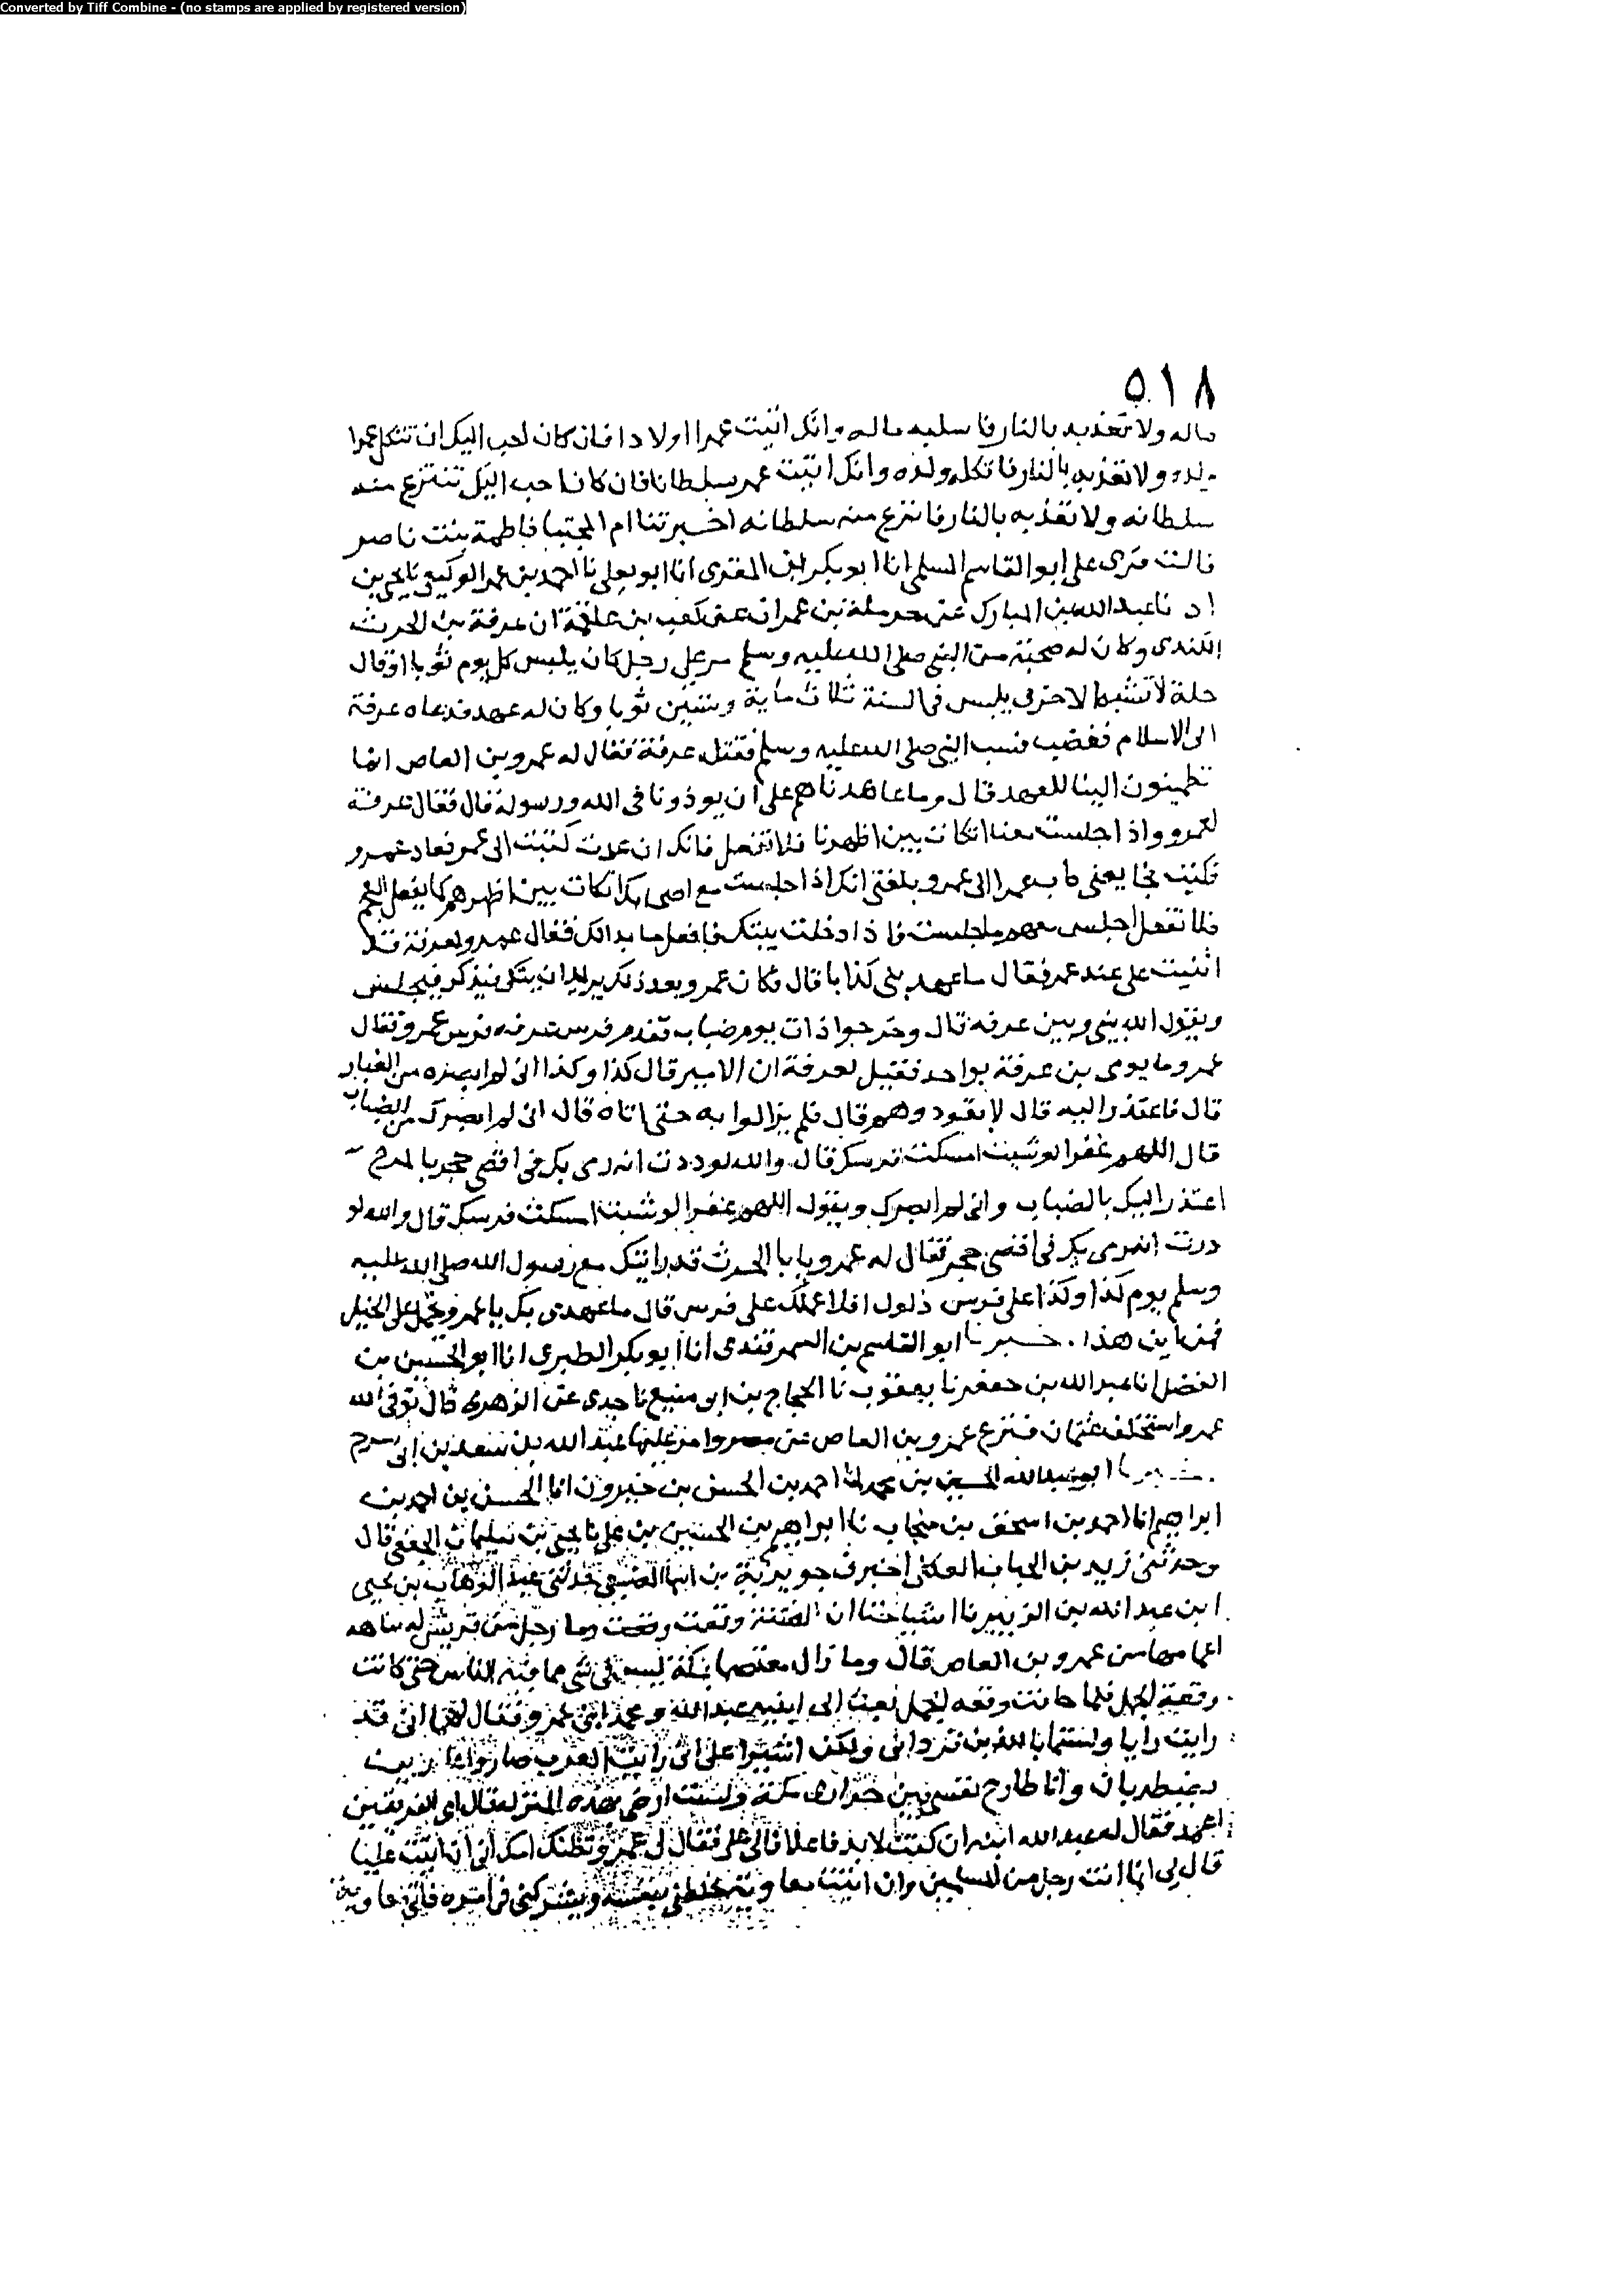 Converted by Tiff Combine - (no stamps are applied by registered version)
٥١٨
ماله ولا تعذبه بالنار فاسلبه ماله وانك اتيت عمرا اولادا فان كان احب اليك ان تثكل عمرا
ولده ولا تعذبه بالنار فاثكله ولده وانك اتيت عمر سلطانا فان كان احب اليك تنتزع منه
سلطانه ولا تعذبه بالنار فانتزع منه سلطانه اخبرتنا ام المجتبا فاطمة بنت ناصر
قالت قرى على ابو القاسم السلمي انا ابو بكر ابن المقرى انا ابو يعلى نا احمد بن عمر الوكيعي نا يحيى بن
ادم نا عبد الله بن المبارك عن حرملة بن عمران عن كعب بن علقمة ان عرفة بن الحرث
الكندى وكان له صحبة من النبي صلى الله عليه وسلم مر على رجل كان يلبس كل يوم ثوبا او قال
حلة لا تشبه الاخرى يلبس في السنة ثلاث ماية وستين ثوبا وكان له عهد فدعاه عرفة
الى الاسلام فغضب فسب النبي صلى الله عليه وسلم فقتله عرفة فقال له عمرو بن العاص انما
يطمئنون الينا للعهد قال وما عاهدناهم على ان يوذونا في الله ورسوله قال فقال عرفة
لعمرو واذا جلست معنا اتكات بين اظهرنا فلا تفعل فانك ان عدت كتبت الى عمر فعاد عمرو
فكتب فجا يعني كتاب عمر الى عمرو بلغني انك اذا جلست مع اصحابك اتكات بين اظهرهم كما يفعل العجم
فلا تفعل اجلس معهم ما جلست فاذا دخلت بيتك فافعل ما بدا لك فقال عمرو لعرفة قد
اثنيت على عند عمر فقال ما عهدتنى كذابا قال فكان عمرو بعد ذلك يريد ان يتكى فيذكر فيجلس
ويقول الله بيني وبين عرفه قال وخرجوا ذات يوم ضباب فتقدم فرس عرفه فرس عمرو فقال
عمرو ما يومى بن عرفة بواحد فقيل لعرفة ان الامير قال كذا وكذا انى لم ابصره من الغبار
قال فاعتذر اليه قال لا تعود وهم قال فلم يزالوا به حتى اتاه قال انى لم ابصرك من الضباب
قال اللهم غفرا لو شيت امسكت فرسك قال والله لوددت انه رمى بك في اقصى حجر بالمرج
اعتذر اليك بالضباب وانى لم ابصرك ويقول اللهم غفرا لو شيت امسكت فرسك قال والله لو
درت انه رمى بك في اقصى حجر فقال له عمرو يا با الحرث قد رايتك مع رسول الله صلى الله عليه
وسلم يوم كذا وكذا على فرس ذلول افلا احملك على فرس قال ما عهدى بك يا عمرو تحمل على الخيل
فمن اين هذا . خبرنا ابو القاسم بن السمرقندى انا ابو بكر الطبرى انا ابو الحسين بن
الفضل انا عبد الله بن جعفر نا يعقوب نا الحجاج بن ابى منيع نا جدى عن الزهرى قال توفى الله
عمر واستخلف عثمان فنزع عمرو بن العاص عن مصر وامر عليها عبد الله بن سعد بن ابى سرح
خبرنا ابو عبد الله الحسين بن محمد انا احمد بن الحسن بن خيرون انا الحسن بن احمد بن
ابراهيم انا احمد بن اسحق بن منجاب نا ابراهيم بن الحسين بن على نا يحيى بن سليمان الجعفي قال
وحدثنى زيد بن الحباب العكلى اخبرنى جويرية بن اسما الضبعي حدثنى عبد الوهاب بن يحيى
ابن عبد الله بن الزبير نا اشياخنا ان الفتنة وقعت وقعت وما رجل من قريش له نباهه
اعما فيها من عمرو بن العاص قال وما زال معتصما بمكة ليس في شى مما فيه الناس حتى كانت
وقعة الجمل فلما كانت وقعه الجمل بعث الى ابنيه عبد الله ومحمد ابنى عمرو فقال لهما انى قد
رايت رايا ولستما باللذين تردانى ولكن اشيرا على انى رايت العرب صاروا غارين
يضطربان وانا طارح نفسى بين جزارى مكة ولست ارضى بهذه المنزلة فالى اى الفريقين
اعمد فقال له عبد الله ابنه ان كنت لا بد فاعلا فالى على فقال لى عمرو ثكلتك امك انى ان اتيت عليا
قال لى انما انت رجل من المسلمين وان اتيت معاوية يخلطنى بنفسه ويشركنى في امره فاتى معاوية